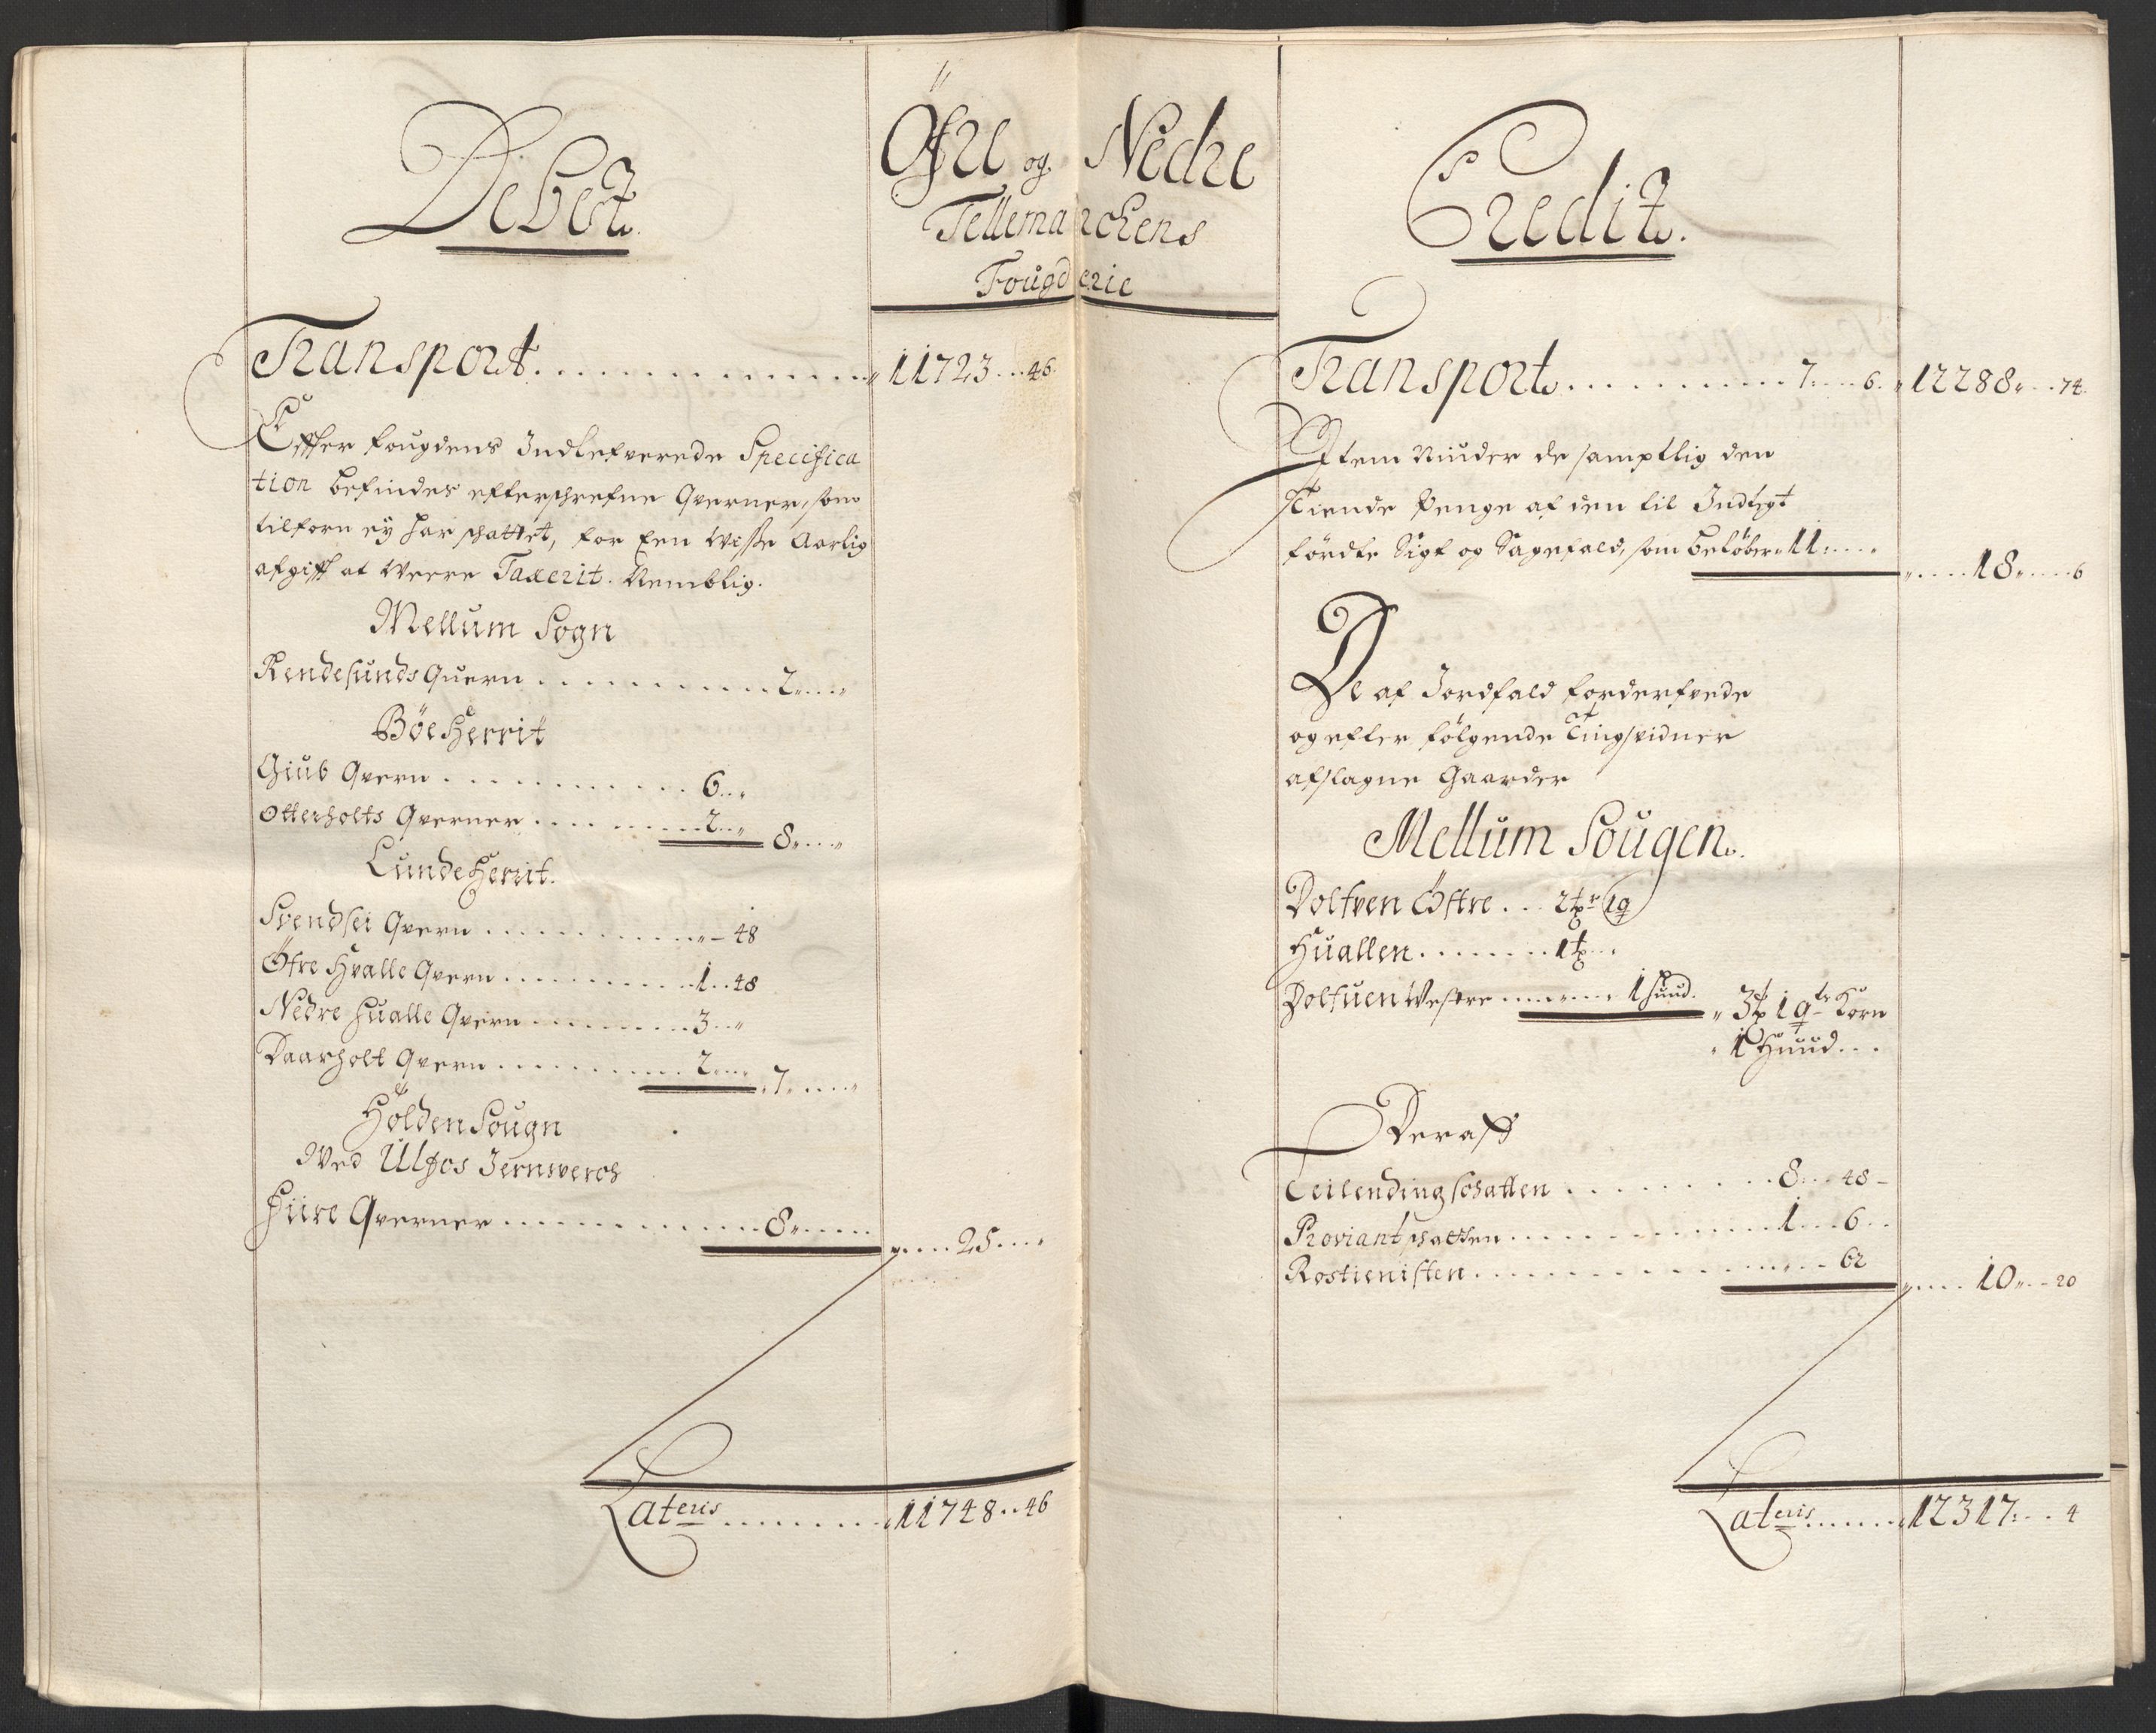 Debet.
Öfre og Nedre
Tellemarchens
Fougderie
Transport. . . . . . . . . . . . . 11723 . . 46
Effter fougdens Indlefverede Specifica
tion befindes efterschrefne Qverner, som
tilforn ey har schattet, for Een wisse Aarlig
afgifft at Were Taxerit. Nemblig.
Mellum Sogn
Rendesunds Quern . . . . . . . . . . 2 „ „
Böe Herrit
Giub Qvern . . . . . . . . . . . 6 „
Otterholts Qverner . . . . . . . 2 „ 8 „ „
Lunde Herrit.
Svendsei Qvern . . . . . . . . . . „ – 48
Öfre Hvalle Qvern . . . . . . . . . 1 . . 48
Nedre Hualle Qvern . . . . . . . . 3 „
Daarholt Qvern . . . . . . . . . 2 „ 7 „ „
Holden Sougn
Ved Ulefos Jernverch
Fiire Qverner . . . . . . . . . . . . 8 „ „ 25 „
Lateris . . . . . . . . 11748 . . 46
Credit.
Transport . . . . . . . . . . 7 „ 6 . „ 12288 „ 74.
Item Niuder de samptlig den
Tiende Penge af den til Indtegt
førdte Sigt og Sagefald, som beløber „ 11 „ „
„ 18 „ 6
De af Jordfald forderfvede
og efter følgende Tingsvidner
afslagne Gaarder
Mellum Sougen.
Doltven Östre . . . 2 tpr 1q
Huallen . . . . . . . 1 tp „
Doltuen Westre „ „ 1 Huud. „ 3 tp 1 qtr Korn
„ 1 Huud . . .
Deraff
Leilending schatten . . . . . . . . 8 „ 48 –
Proviant schatten . . . . . . . . . . 1 „ 6 . .
Rostienisten . . . . . . . . . . . . . 62
„ 10 „ 20
Lateris . . . . . „ 12317 „ 4